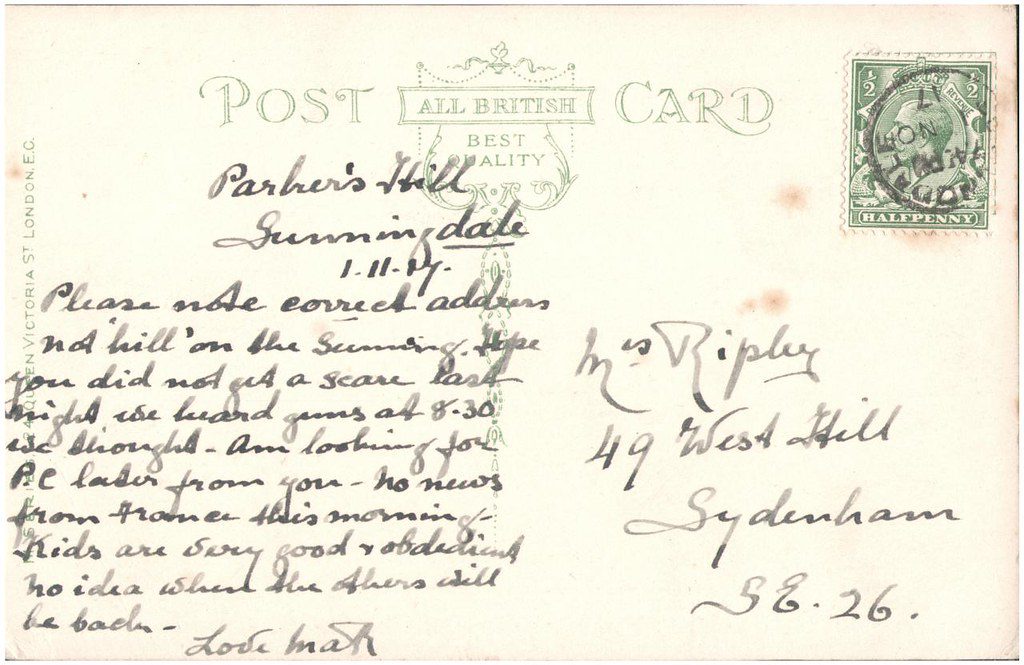 POST CARD
ALL BRITISH
BEST
QUALITY
½ ½
REVENUE
HALFPENNY
NO 17
4 PM
Parker's Hill
Sunningdale
1.11.17.
Please note correct address
not 'hill' on the Sunning. Hope
you did not get a scare last
night we heard guns at 8-30
we thought - Am looking for
PC later from you - no news
from France this morning -
Kids are very good & obdedient
no idea when the others will
be back -
Love
Mrs Ripley
49 West Hill
Sydenham
S.E. 26.
QUEEN VICTORIA ST LONDON, E.C.